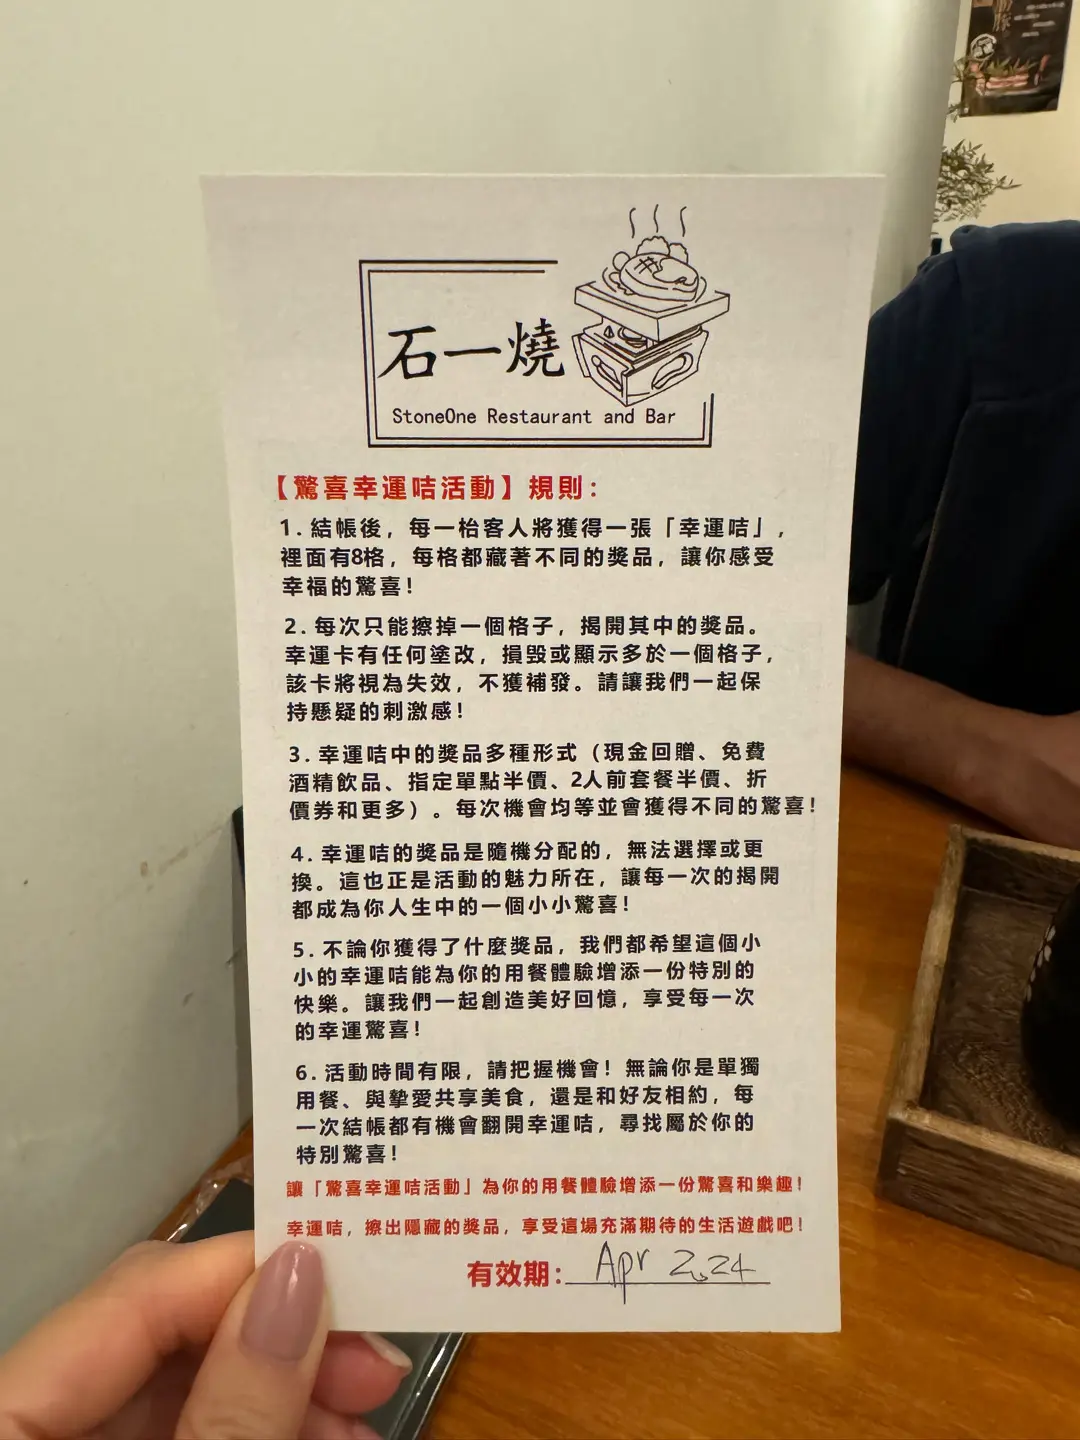 石一燒
StoneOne Restaurant and Bar
【驚喜幸運咭活動】規則：
1. 結帳後，每一枱客人將獲得一張「幸運咭」，
裡面有8格，每格都藏著不同的獎品，讓你感受
幸福的驚喜！
2. 每次只能擦掉一個格子，揭開其中的獎品。
幸運卡有任何塗改，損毀或顯示多於一個格子，
該卡將視為失效，不獲補發。請讓我們一起保
持懸疑的刺激感！
3. 幸運咭中的獎品多種形式（現金回贈、免費
酒精飲品、指定單點半價、2人前套餐半價、折
價券和更多）。每次機會均等並會獲得不同的驚喜！
4. 幸運咭的獎品是隨機分配的，無法選擇或更
換。這也正是活動的魅力所在，讓每一次的揭開
都成為你人生中的一個小小驚喜！
5. 不論你獲得了什麼獎品，我們都希望這個小
小的幸運咭能為你的用餐體驗增添一份特別的
快樂。讓我們一起創造美好回憶，享受每一次
的幸運驚喜！
6. 活動時間有限，請把握機會！無論你是單獨
用餐、與摯愛共享美食，還是和好友相約，每
一次結帳都有機會翻開幸運咭，尋找屬於你的
特別驚喜！
讓「驚喜幸運咭活動」為你的用餐體驗增添一份驚喜和樂趣！
幸運咭，擦出隱藏的獎品，享受這場充滿期待的生活遊戲吧！
有效期：Apr 2024